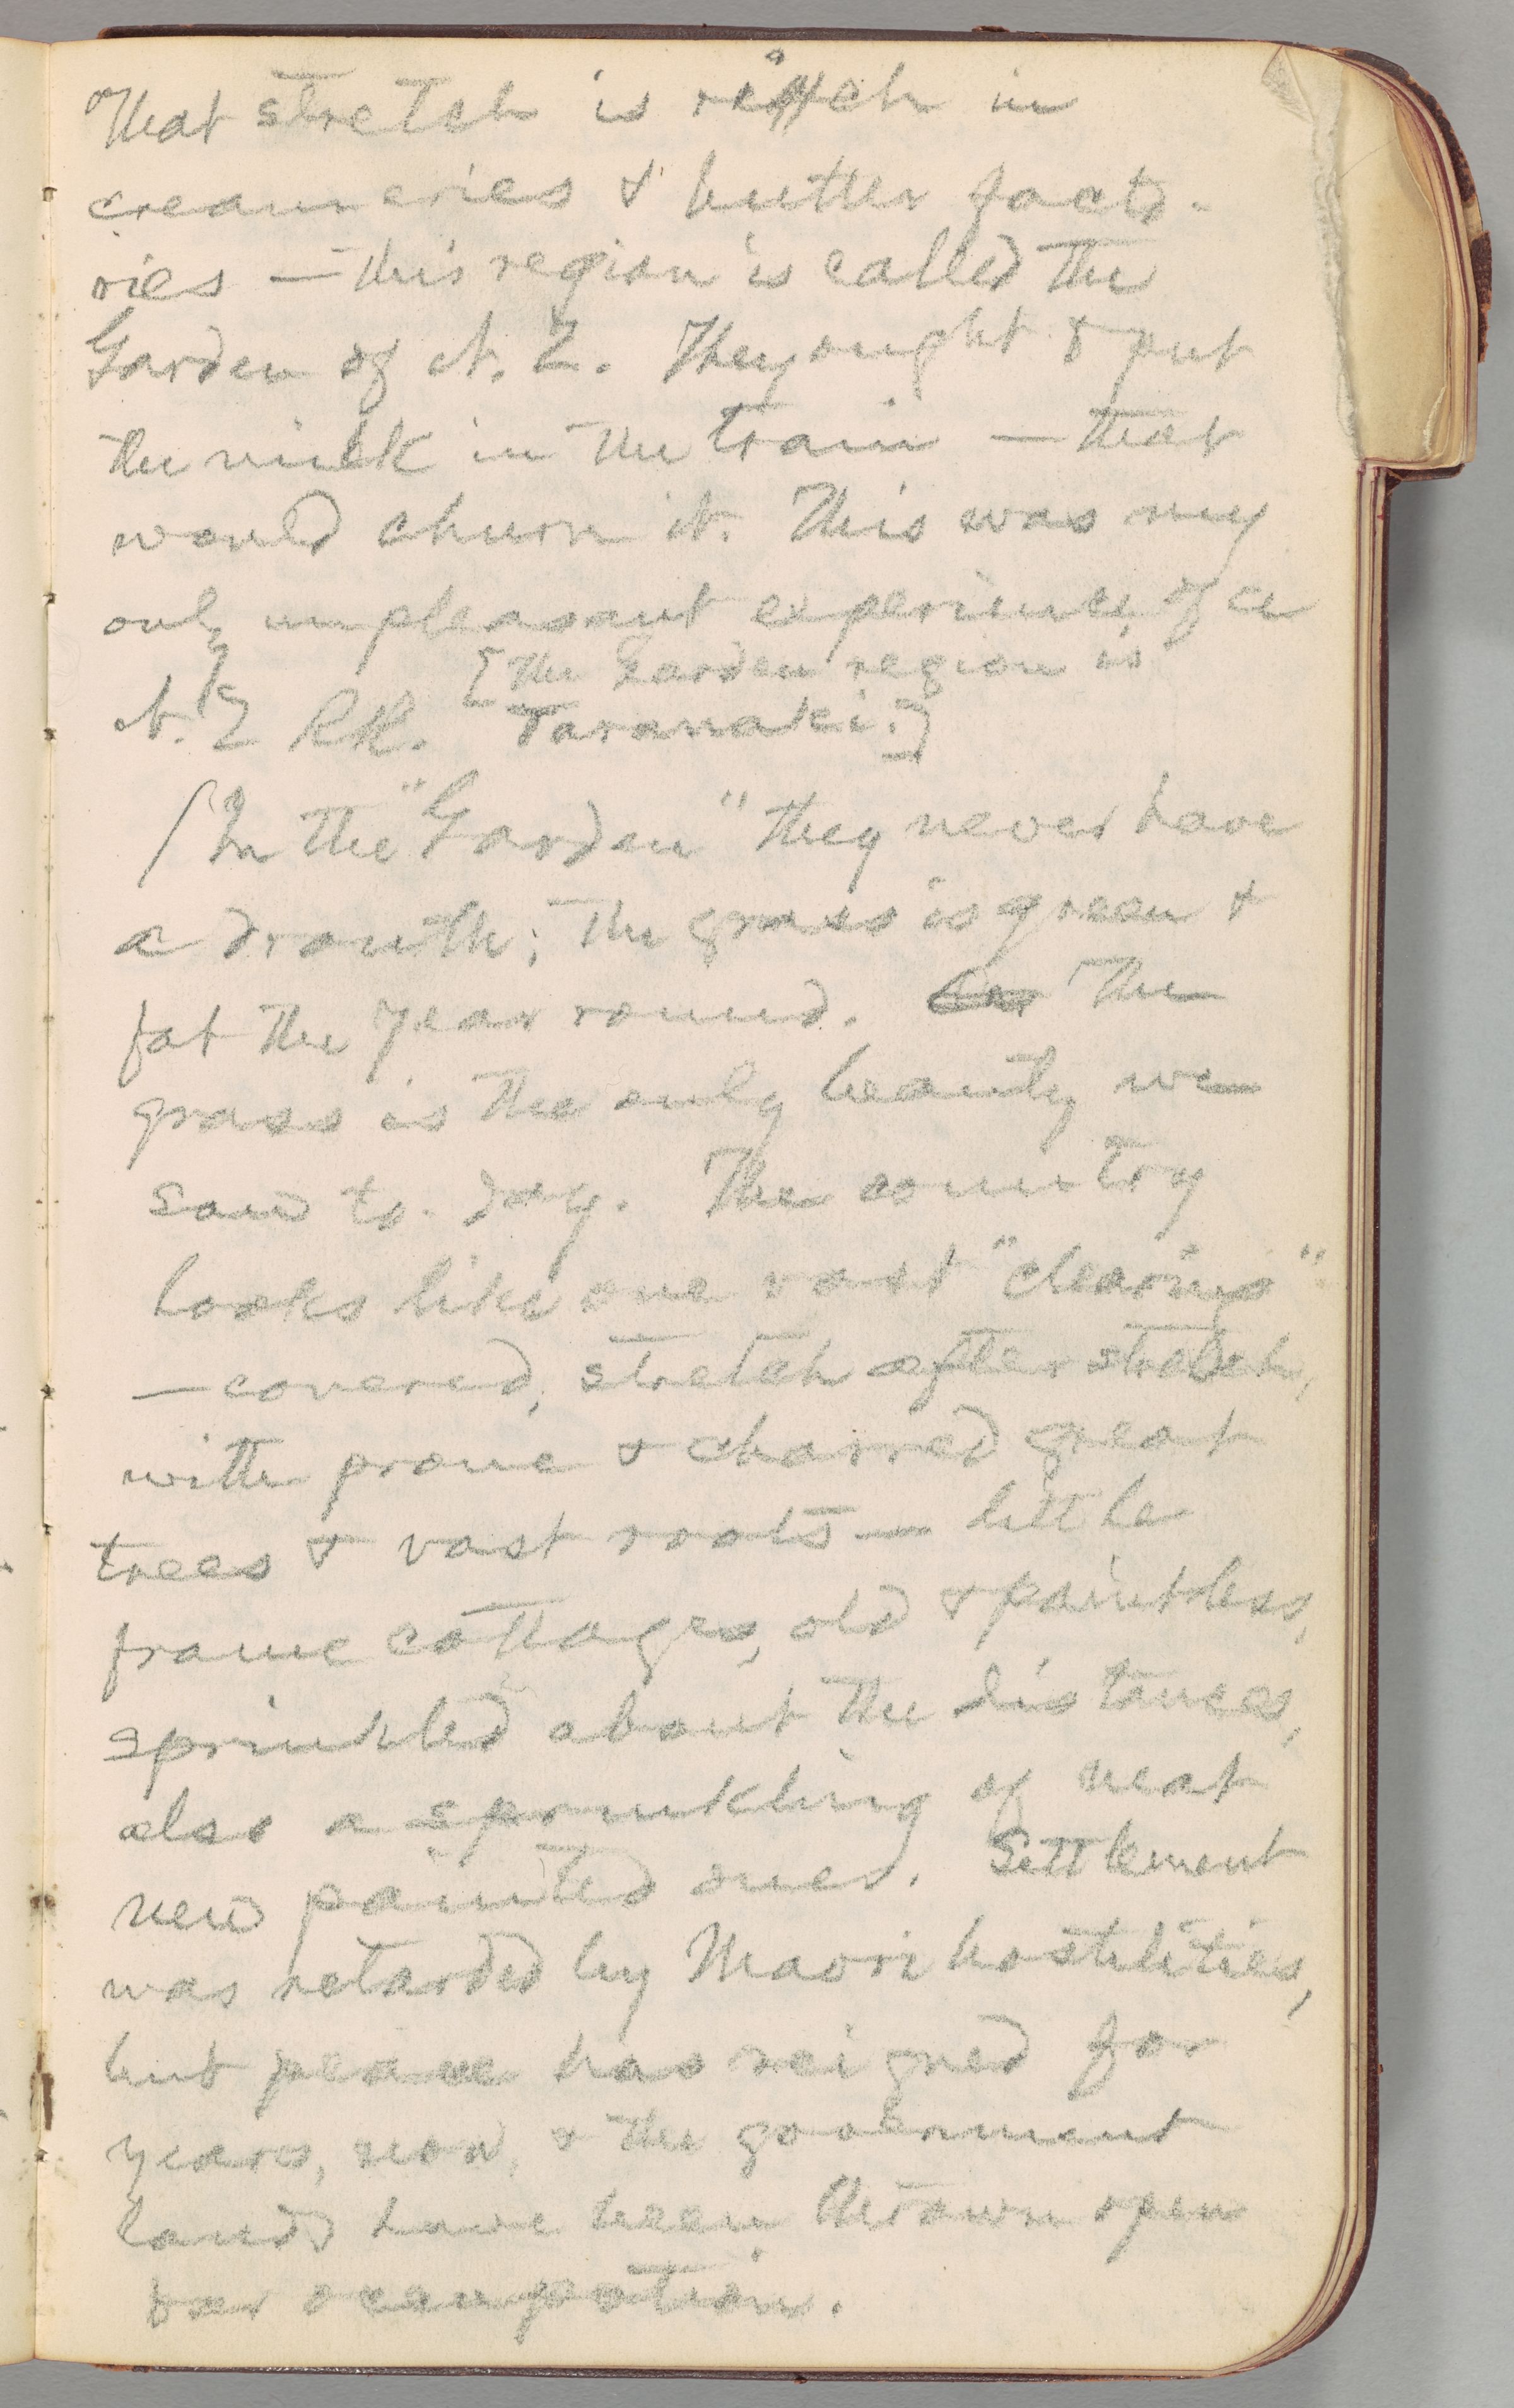 That stretch is rich in
creameries & butter facto-
ries — this region is called the
Garden of N. Z. They ought to put
the milk in the train — that
would churn it. This was my
only unpleasant experience of a
[The Garden region is
N. Z RR. Taranaki.]
In the "Garden" they never have
a drouth; the grass is green &
fat the year round. The
grass is the only beauty we
saw to-day. The country
looks like one vast "clearing"
— covered, stretch after stretch,
with prone & charred great
trees & vast roots — little
frame cottages, old & paintless,
sprinkled about the distances,
also a sprinkling of neat
new painted ones. Settlement
was retarded by Maori hostilities,
but peace has reigned for
years, now, & the government
lands have been thrown open
for occupation.